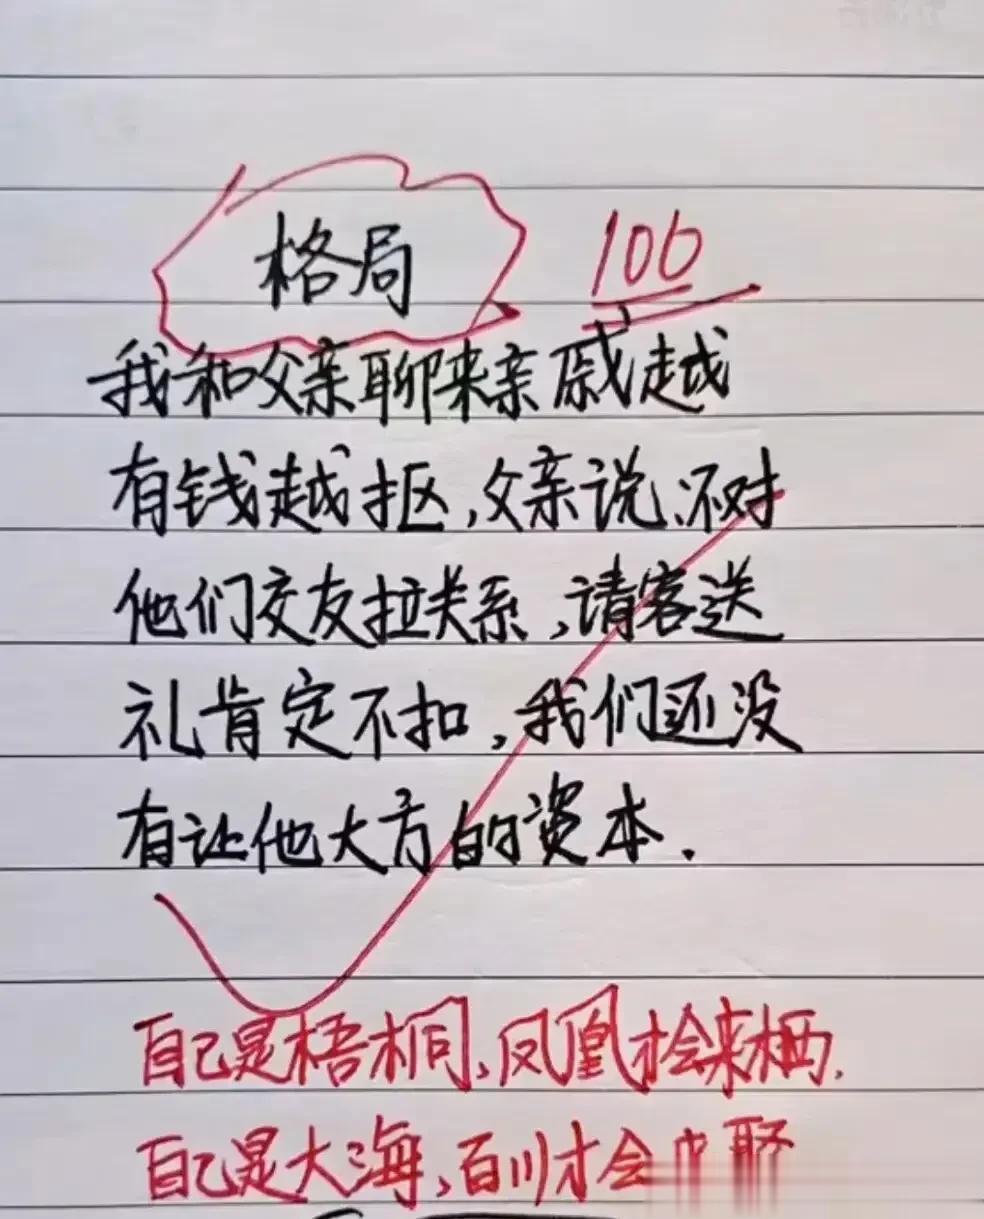 格局
100
我和父亲聊来亲戚越
有钱越抠,父亲说、不对
他们交友拉关系,请客送
礼肯定不扣,我们还没
有让他大方的资本.
自己是梧桐,凤凰才会来栖.
自己是大海,百川才会聚